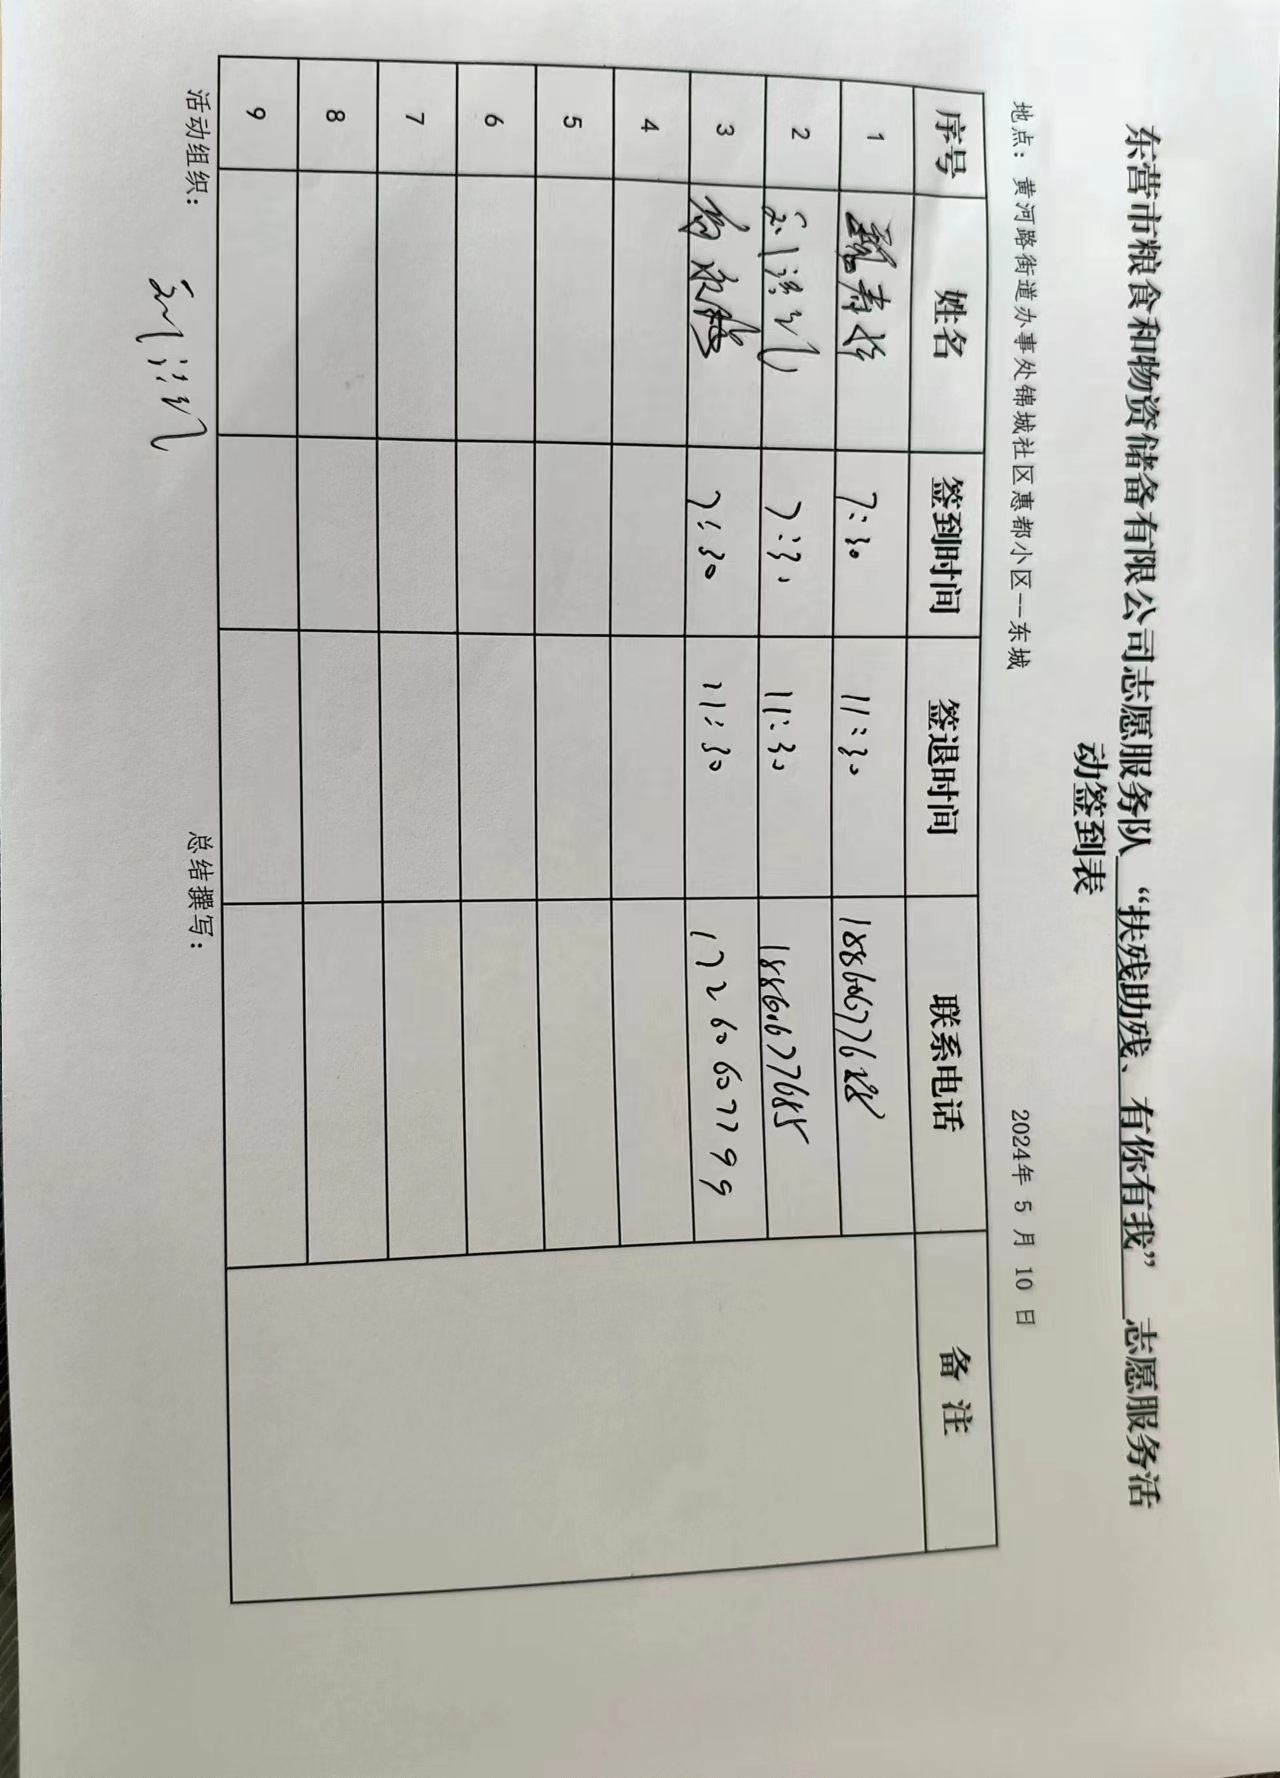 东营市粮食和物资储备有限公司志愿服务队 “扶残助残、有你有我” 志愿服务活
动签到表
地点：黄河路街道办事处锦城社区惠都小区--东城 2024年 5 月 10 日
序号 姓名 签到时间 签退时间 联系电话 备 注
1 7:30 11:30 18860677688
2 7:30 11:30
3 7:30 11:30 17260607799
4
5
6
7
8
9
活动组织： 总结撰写：